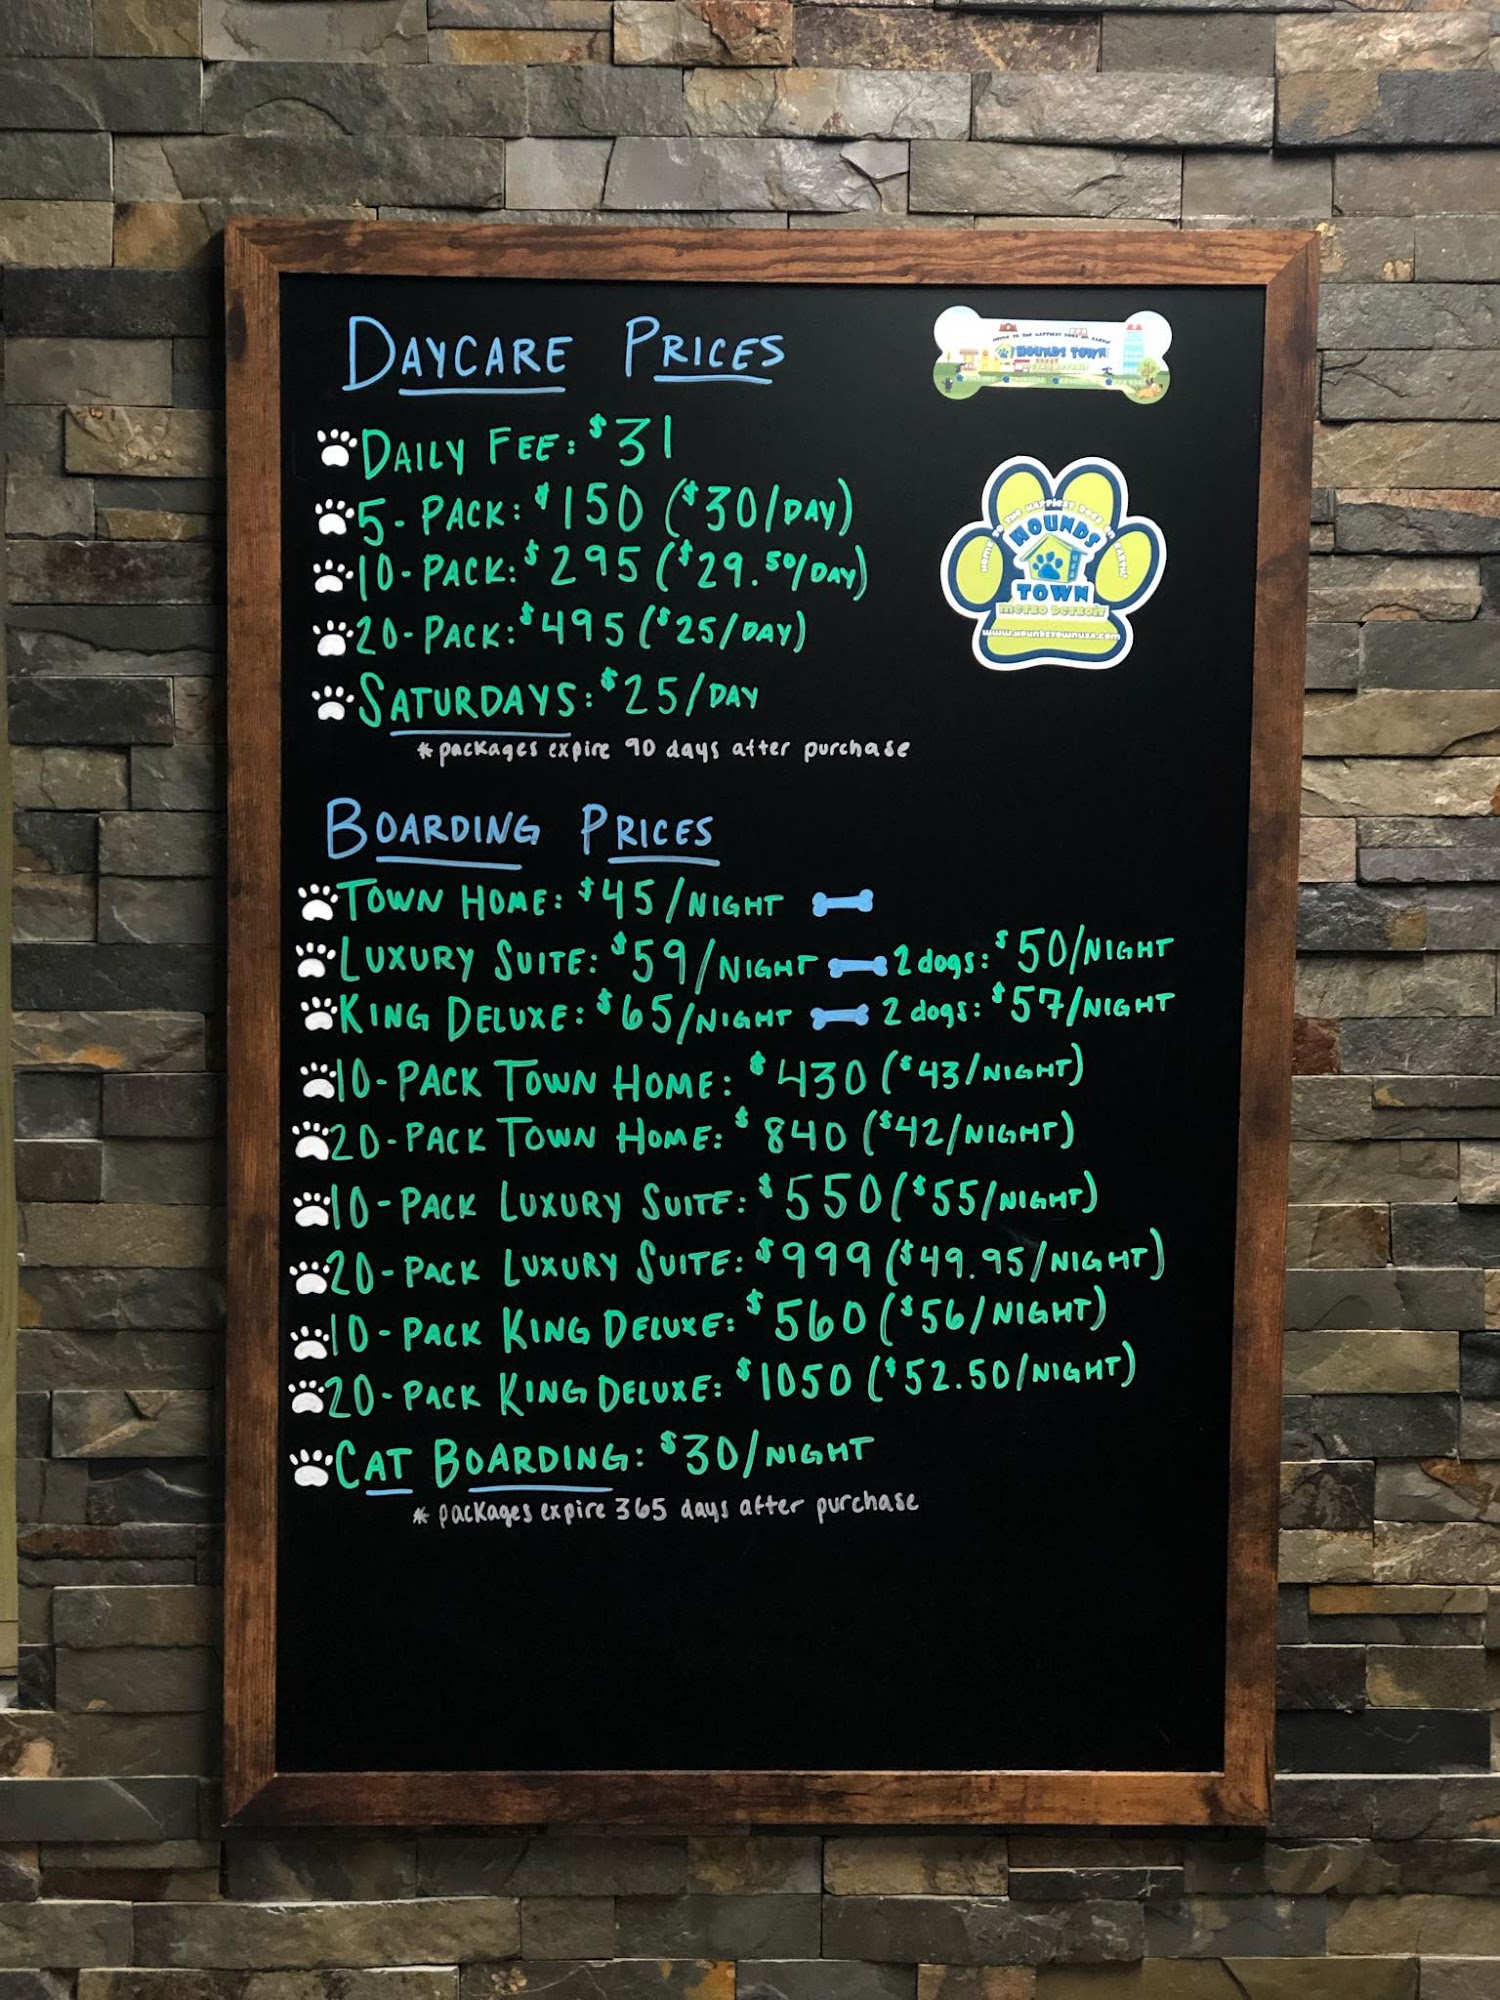 DAYCARE PRICES
DAILY FEE: $31
5-PACK: $150 ($30/DAY)
10-PACK: $295 ($29.50/DAY)
20-PACK: $495 ($25/DAY)
SATURDAYS: $25/DAY
* packages expire 90 days after purchase
HOUNDS TOWN
HOME TO THE HAPPIEST DOGS ON EARTH!
HOUNDS
USA
TOWN
METRO DETROIT
www.HOUNDSTOWNUSA.com
BOARDING PRICES
TOWN HOME: $45/NIGHT
LUXURY SUITE: $59/NIGHT 2 dogs: $50/NIGHT
KING DELUXE: $65/NIGHT 2 dogs: $57/NIGHT
10-PACK TOWN HOME: $430 ($43/NIGHT)
20-PACK TOWN HOME: $840 ($42/NIGHT)
10-PACK LUXURY SUITE: $550 ($55/NIGHT)
20-PACK LUXURY SUITE: $999 ($49.95/NIGHT)
10-PACK KING DELUXE: $560 ($56/NIGHT)
20-PACK KING DELUXE: $1050 ($52.50/NIGHT)
CAT BOARDING: $30/NIGHT
* packages expire 365 days after purchase